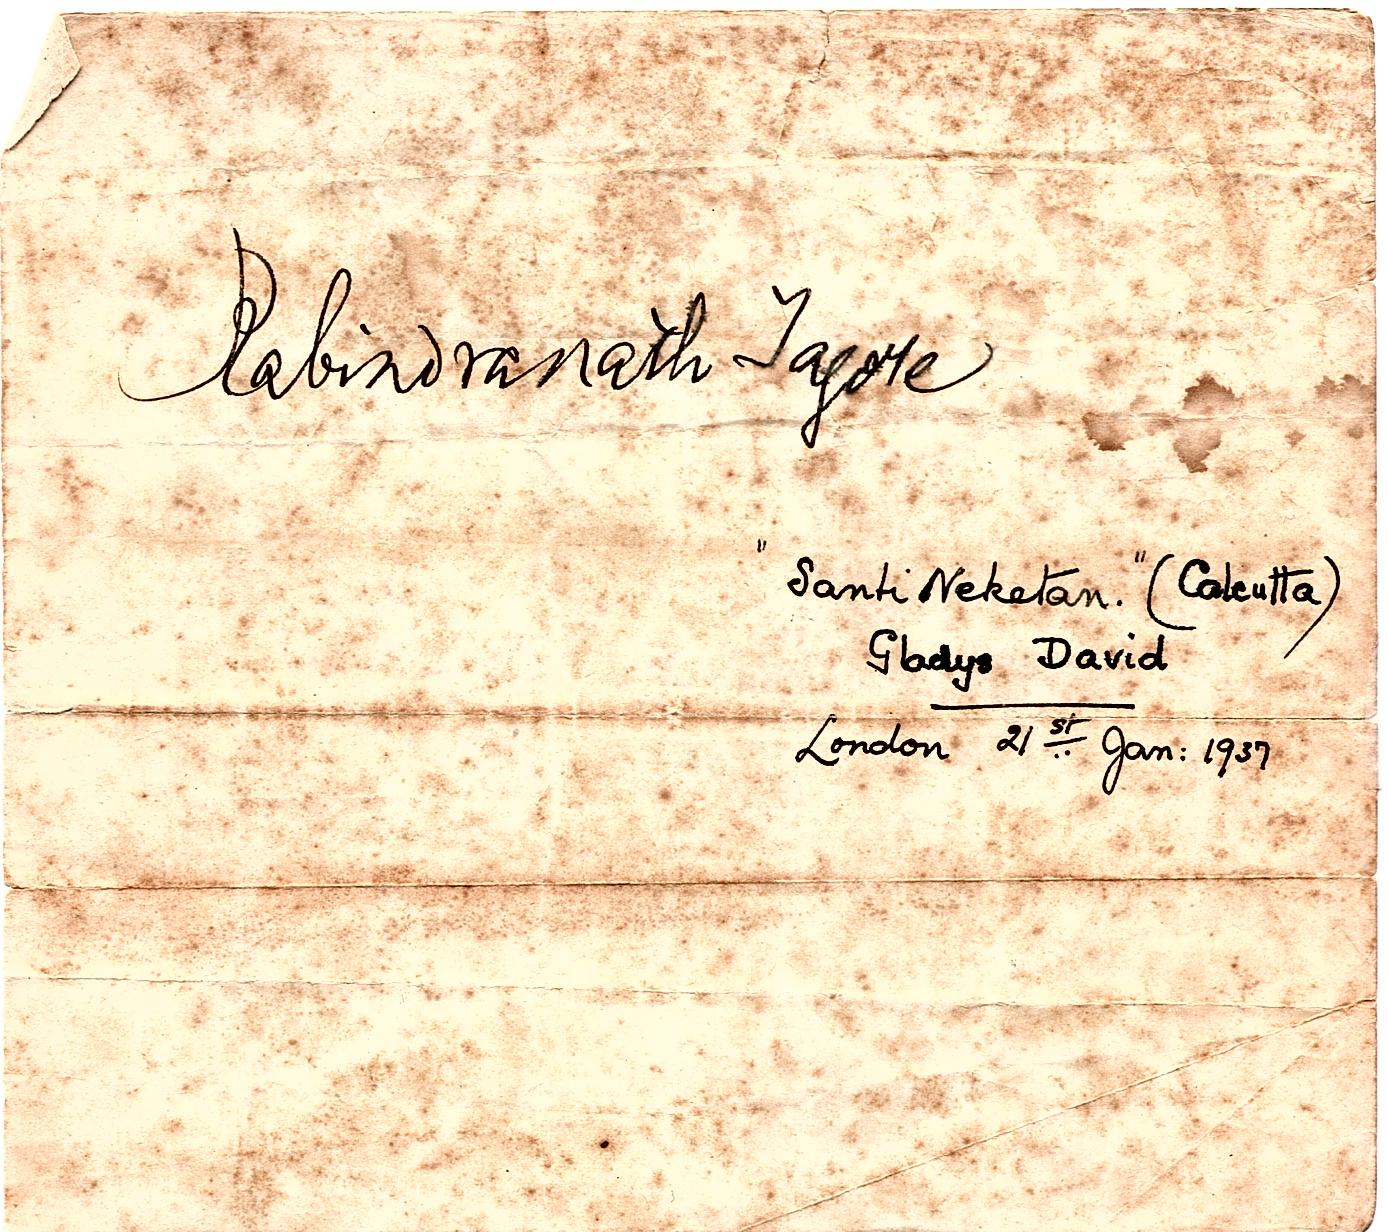 Rabindranath Tagore
"Santi Neketan." (Calcutta)
Gladys David
London 21st Jan: 1937